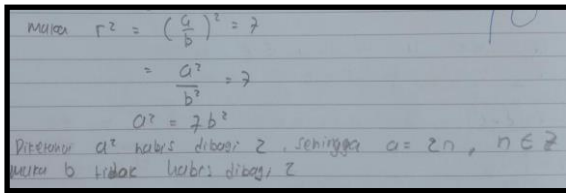 maka r² = (a/b)² = 7
= a²/b² = 7
a² = 7b²
Diketahui a² habis dibagi 2, sehingga a = 2n, n ∈ Z
maka b tidak habis dibagi 2